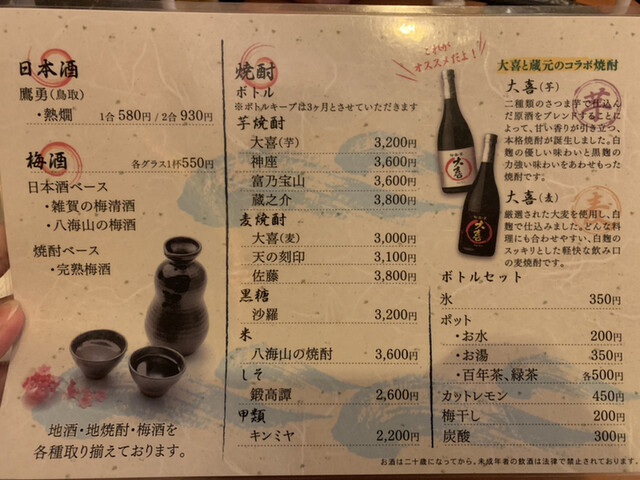 日本酒
鷹勇(鳥取)
・熱燗 1合 580円 / 2合 930円
梅酒 各グラス1杯550円
日本酒ベース
・雑賀の梅清酒
・八海山の梅酒
焼酎ベース
・完熟梅酒
地酒・地焼酎・梅酒を
各種取り揃えております。
焼酎
ボトル
※ボトルキープは3ヶ月とさせていただきます
芋焼酎
大喜(芋) 3,200円
神座 3,600円
富乃宝山 3,600円
蔵之介 3,800円
麦焼酎
大喜(麦) 3,000円
天の刻印 3,100円
佐藤 3,800円
黒糖
沙羅 3,200円
米
八海山の焼酎 3,600円
しそ
鍛高譚 2,600円
甲類
キンミヤ 2,200円
これが
オススメだよ!
大喜
大喜
大喜と蔵元のコラボ焼酎
大喜(芋)
二種類のさつま芋で仕込ん
だ原酒をブレンドすることに
よって、甘い香りが引き立つ、
本格焼酎が誕生しました。白
麹の優しい味わいと黒麹の
力強い味わいをあわせもった
焼酎です。
大喜(麦)
厳選された大麦を使用し、白
麹で仕込みました。どんな料
理にも合わせやすい、白麹の
スッキリとした軽快な飲み口
の麦焼酎です。
ボトルセット
氷 350円
ポット
・お水 200円
・お湯 350円
・百年茶、緑茶 各500円
カットレモン 450円
梅干し 200円
炭酸 300円
お酒は二十歳になってから。未成年者の飲酒は法律で禁止されております。